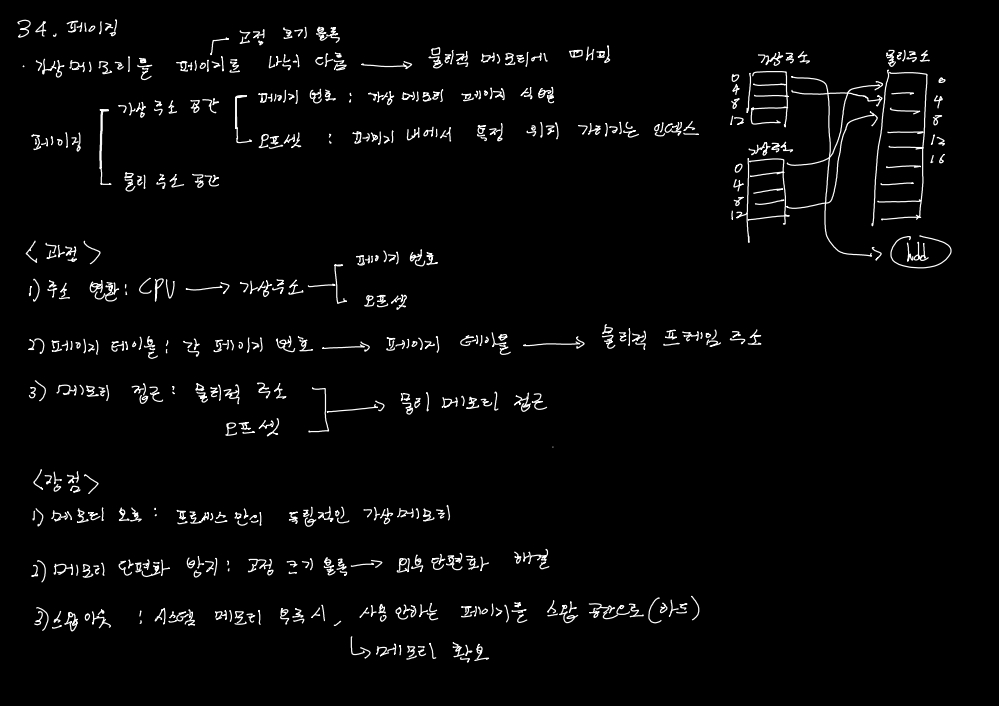 34. 페이징
고정 크기 블록
· 가상메모리를 페이지로 나눠서 다룸 → 물리적 메모리에 매핑
페이징
가상 주소 공간
페이지 번호 : 가상 메모리 페이지 식별
오프셋 : 페이지 내에서 특정 위치 가리키는 인덱스
물리 주소 공간
가상주소
0
4
8
12
가상주소
0
4
8
12
물리주소
0
4
8
12
16
hdd
<과정>
1) 주소 변환 : CPU → 가상주소
페이지 번호
오프셋
2) 페이지 테이블 : 각 페이지 번호 → 페이지 테이블 → 물리적 프레임 주소
3) 메모리 접근 : 물리적 주소
오프셋
→ 물리 메모리 접근
<장점>
1) 메모리 보호 : 프로세스만의 독립적인 가상메모리
2) 메모리 단편화 방지 : 고정 크기 블록 → 외부 단편화 해결
3) 스왑아웃 : 시스템 메모리 부족 시, 사용 안하는 페이지를 스왑 공간으로 (하드)
↳ 메모리 확보